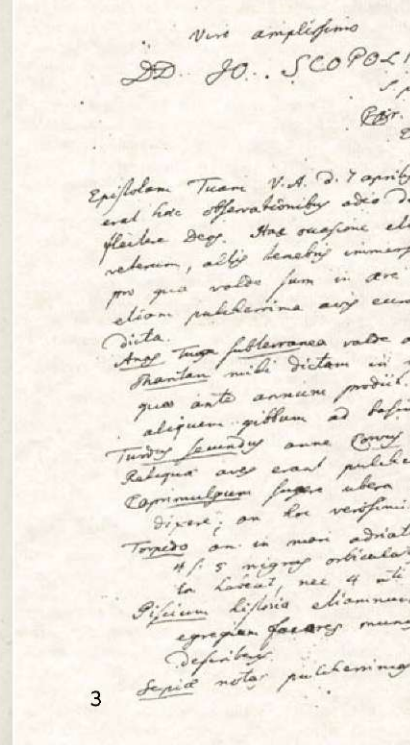 Viro amplissimo
DD. JO. SCOPOLI
S. p
Epistolam Tuam V. A. d. 7 aprilis
erat hoc observationibus adeo
flectere Deos. Hac occasione
veterum, actis tenebris immers
pro qua valde sum in ære
etiam pulcherrima avis
dicta.
Anas Tuga subterranea valde
mihi dictam in
quæ ante annum prodiit.
aliquem gibbum ad basin
Turdus secundus anne Corvus
Reliquæ aves erant pulche
Caprimulgum sugere ubera
dixere; an hoc verosimi
Torpedo an in mari adriat
4 s. 5 nigras orbicular
habeat, nec 4 uti
Piscium historia etiamnum
egregium faceres munu
describens.
Sepiæ notas pulcherrimas
3